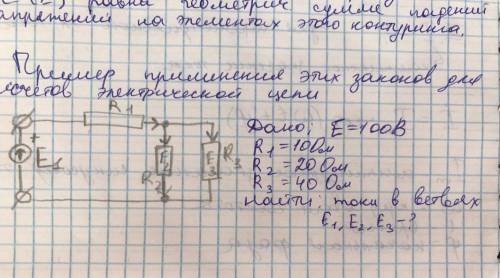 равна геометрич сумме падений
напряжений на элементах этого контуринга.
Пример применения этих законов для
расчетов электрической цепи
R1
+
E1
E2
R2
E3
R3
Дано: E=100В
R1=10Ом
R2=20 Ом
R3=40 Ом
Найти: токи в ветвях
E1, E2, E3 -?